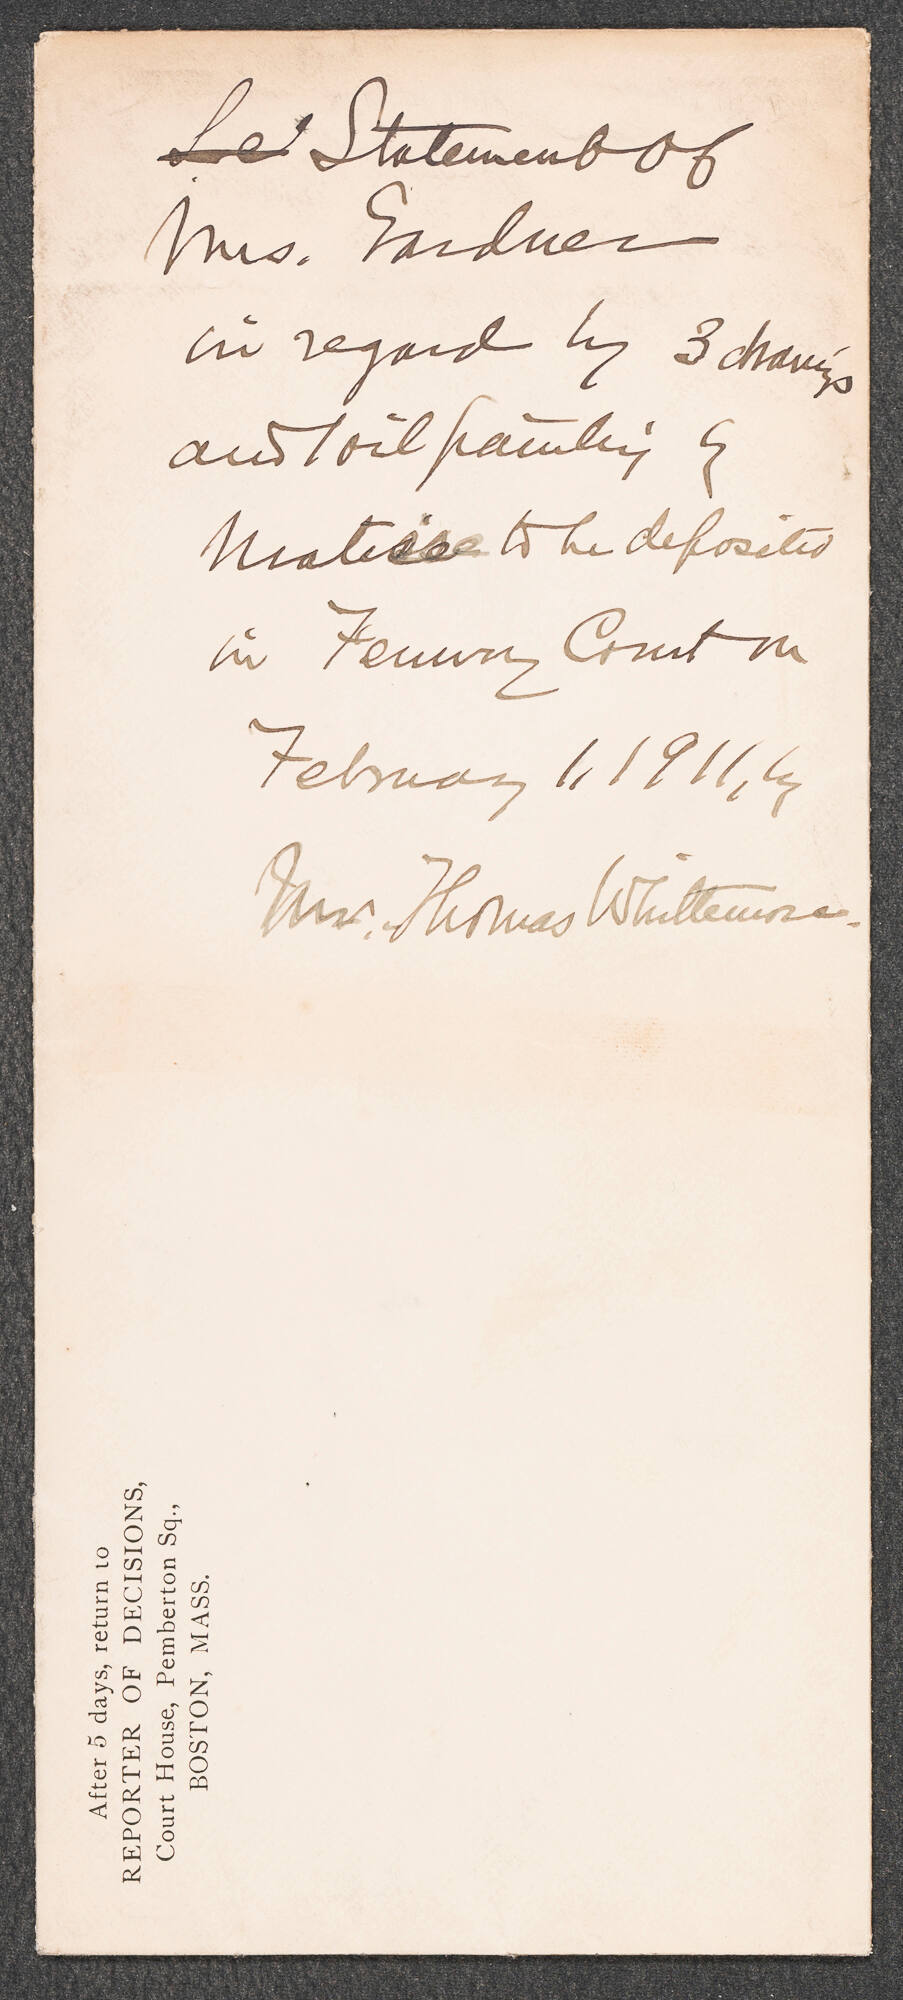 Le' Statement of
Mrs. Gardner
in regard to 3 drawings
and 1 oil painting by
Matisse to be deposited
in Fenway Court on
February 1, 1911, by
Mr. Thomas Whittemore.
After 5 days, return to
REPORTER OF DECISIONS,
Court House, Pemberton Sq.,
BOSTON, MASS.